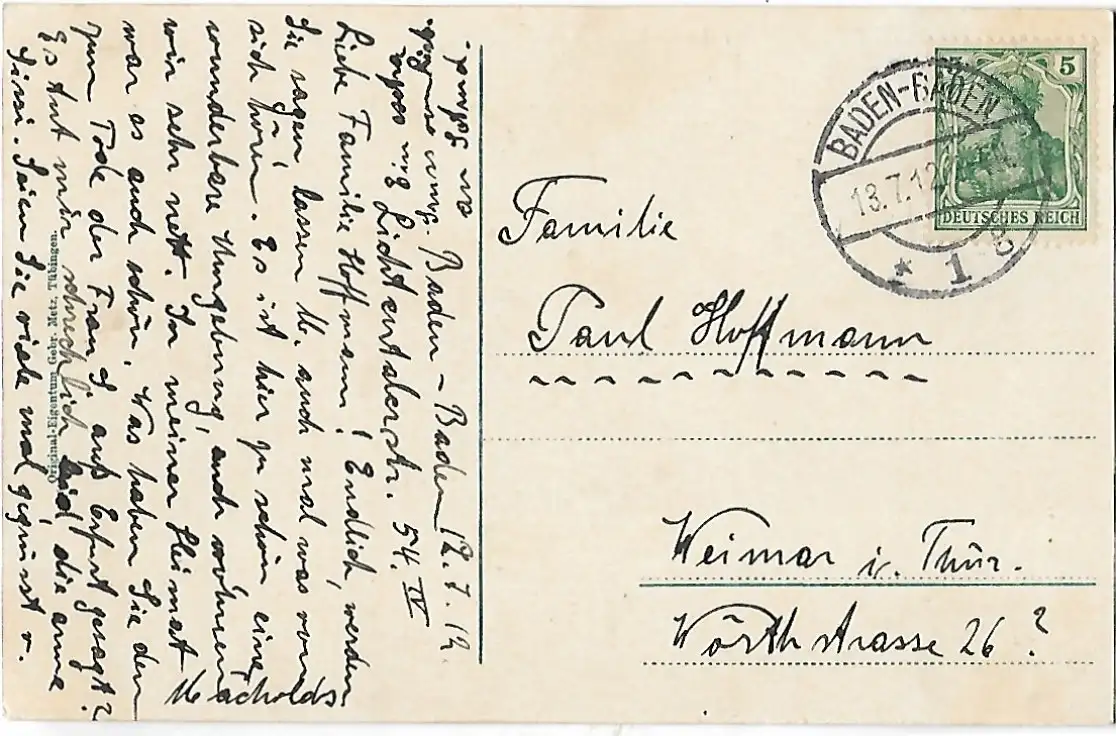 Baden-Baden 12.7.12.
Lichtentalerstr. 54. IV
Liebe Familie Hoffmann! Endlich, werden
Sie sagen, lassen M. auch mal was von
sich hören. Es ist hier zu schön eine
wunderbare Umgebung, auch wohnen
wir sehr nett. In meiner Heimat
war es auch schön. Was haben Sie denn
zum Tode der Frau J aus Erfurt gesagt?
Es tut mir schrecklich leid, die arme
Sissi. Seien Sie viele mal gegrüsst v.
Macholds
Original-Eigentum Gebr. Metz, Tübingen.
BADEN-BADEN
13.7.12
* 1 g
5
DEUTSCHES REICH
Familie
Paul Hoffmann
Weimar i. Thür.
Wörthstrasse 26?